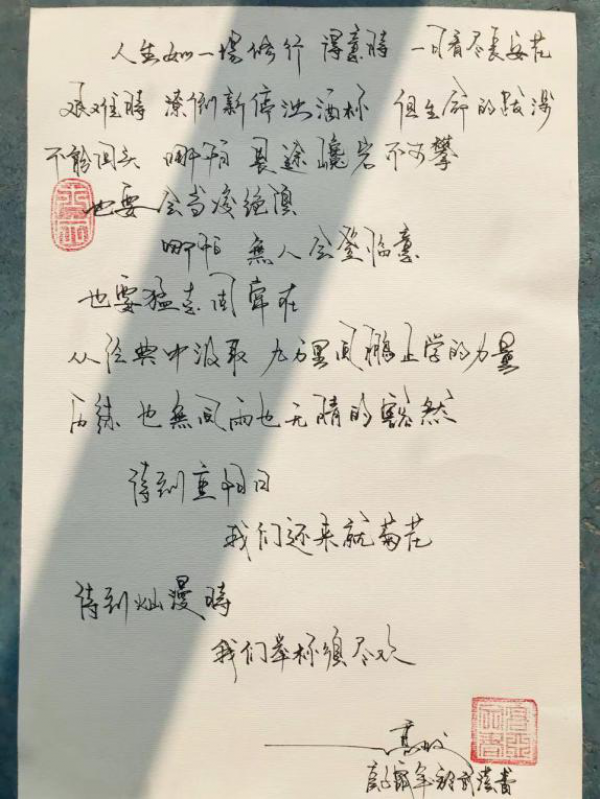 人生如一場修行 得意時 一日看尽長安花
艰难時 潦倒新停浊酒杯 但生命的跋涉
不能回头 哪怕 畏途巉岩不可攀
也要 会当凌绝頂
哪怕 無人会登临意
也要猛志固常在
从经典中汲取 九万里风鹏正举的力量
历练 也無风雨也无晴的豁然
待到重阳日
我们还来就菊花
待到灿漫時
我们举杯须尽欢